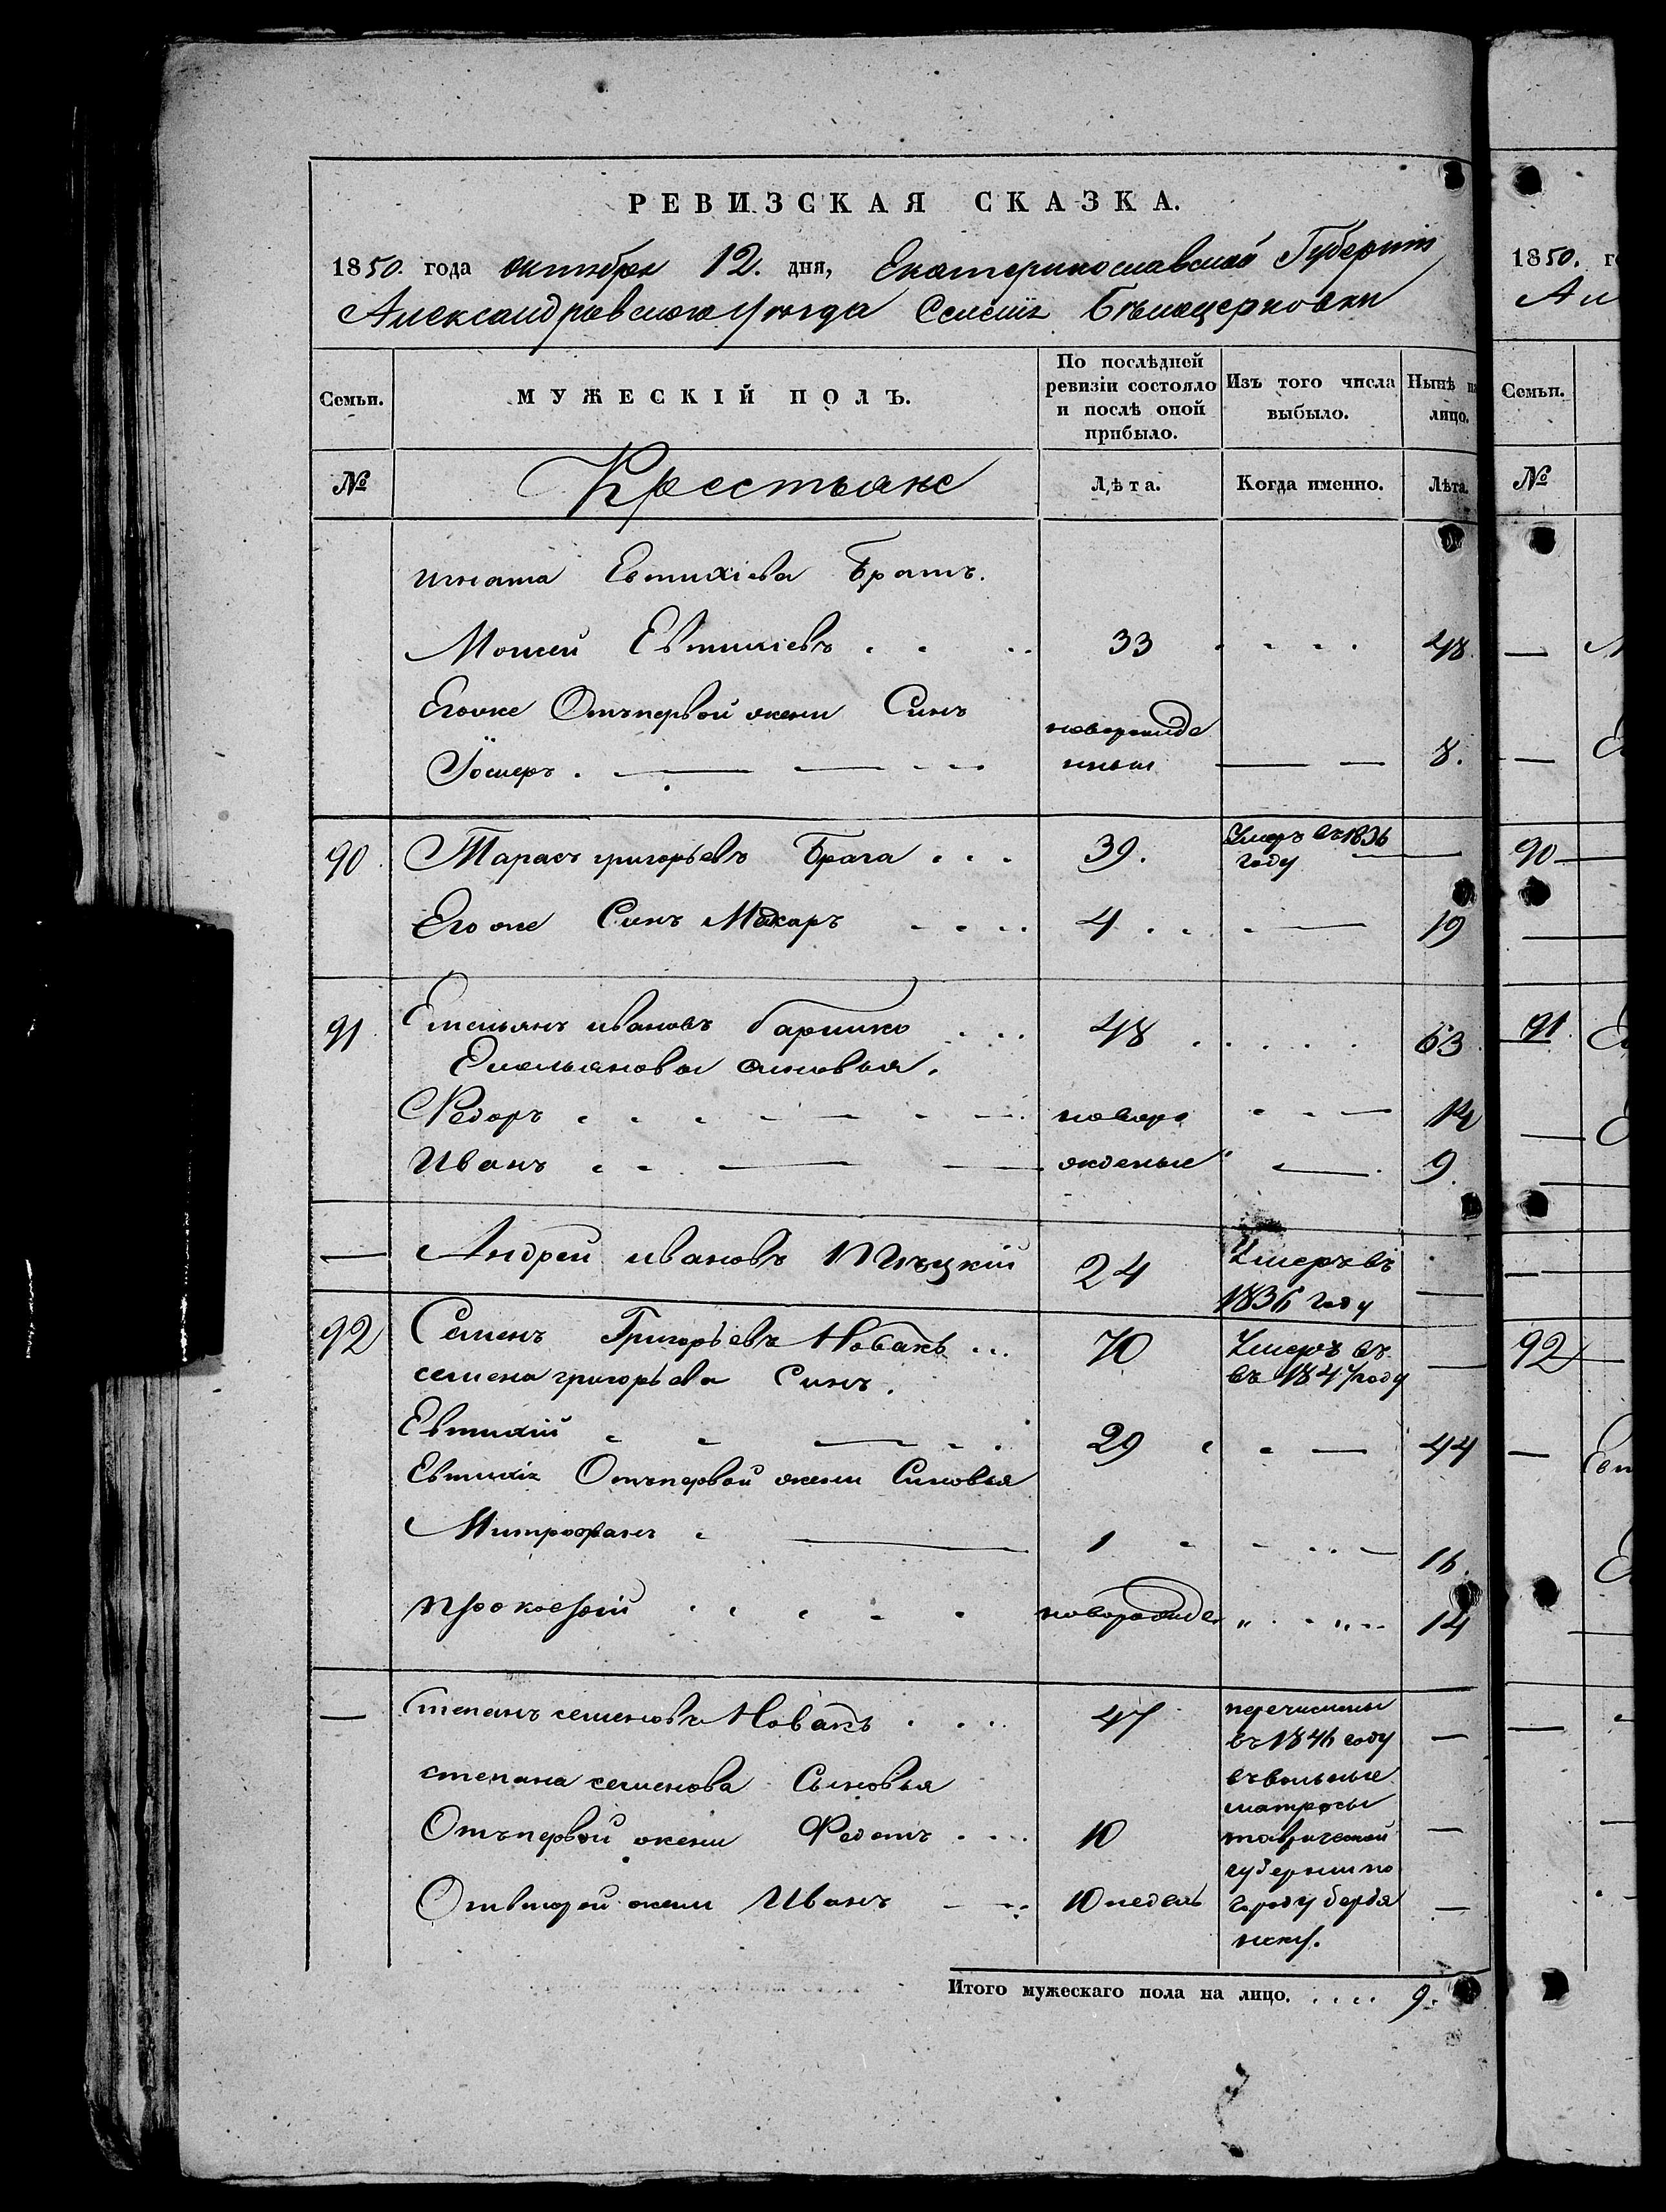 РЕВИЗСКАЯ СКАЗКА.
1850. года октября 12. дня, Екатеринославской Губернии
Александровского уезда Бѣлоцерковки
Семьи. МУЖЕСКІЙ ПОЛЪ. По послѣдней ревизіи состояло и послѣ оной прибыло. Изъ того числа выбыло. Нынѣ на лицо.
№ Крестьяне Лѣта. Когда именно. Лѣта.
игната Евтихіева Братъ.
Моисей Евтихіевъ 33 48
Егоже Отъпервой жени Синъ новорожде
нный 8.
90 Тарасъ григорьевъ Брага 39. Умеръ въ 1836
году
Его же Синъ Макаръ 4 19
91 Емельянъ ивановъ 48 63
Емельяновы синовья.
Федоръ новоро 14
Иванъ жденые 9.
— Андрей ивановъ 24 Умеръ въ
1836 году
92 Семенъ Григорьевъ Новакъ 70 Умеръ въ —
семена григорьева Синъ. въ 1847 году
Евтихій 29 44
Евтихія Отъпервой жени Синовья
Митрофанъ 1 16.
прокофій новорожде 14
— степанъ семеновъ Новакъ 47 перечислены —
въ 1846 году
степана семенова Сыновья въвольные
матросы
Отъпервой жени Федотъ 10 таврической —
губернии по
Отвторой жени Иванъ 10 недель городу бердя —
нску.
Итого мужескаго пола на лицо. . . . . 9.
1850. г
Ал
Семьи.
№
90
91
92